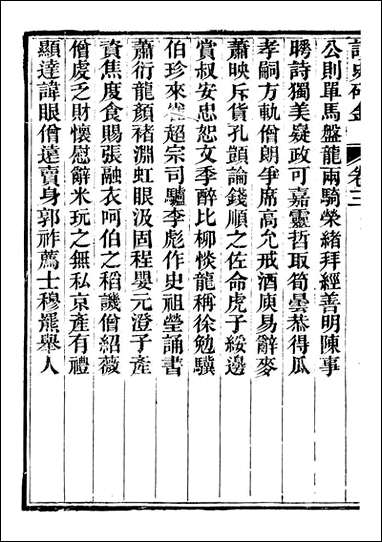 讀史碎金 卷三
公則單馬盤龍兩騎榮緒拜經善明陳事
聘詩獨美疑政可嘉靈哲取筍曇恭得瓜
孝嗣方軌僧朗爭席高允戒酒庾易辭麥
蕭映斥貨孔顗論錢順之佐命虎子綏邊
賞叔安忠恕文季醉比柳惔龍稱徐勉驥
伯珍來超宗司驢李彪作史祖瑩誦書
蕭衍龍顏褚淵虹眼汲固程嬰元澄子產
資焦度食賜張融衣呵伯之稻譏僧紹薇
僧虔乏財懷慰辭米玩之無私京產有禮
顯達諱眼僧達賣身郭祚薦士穆羆舉人